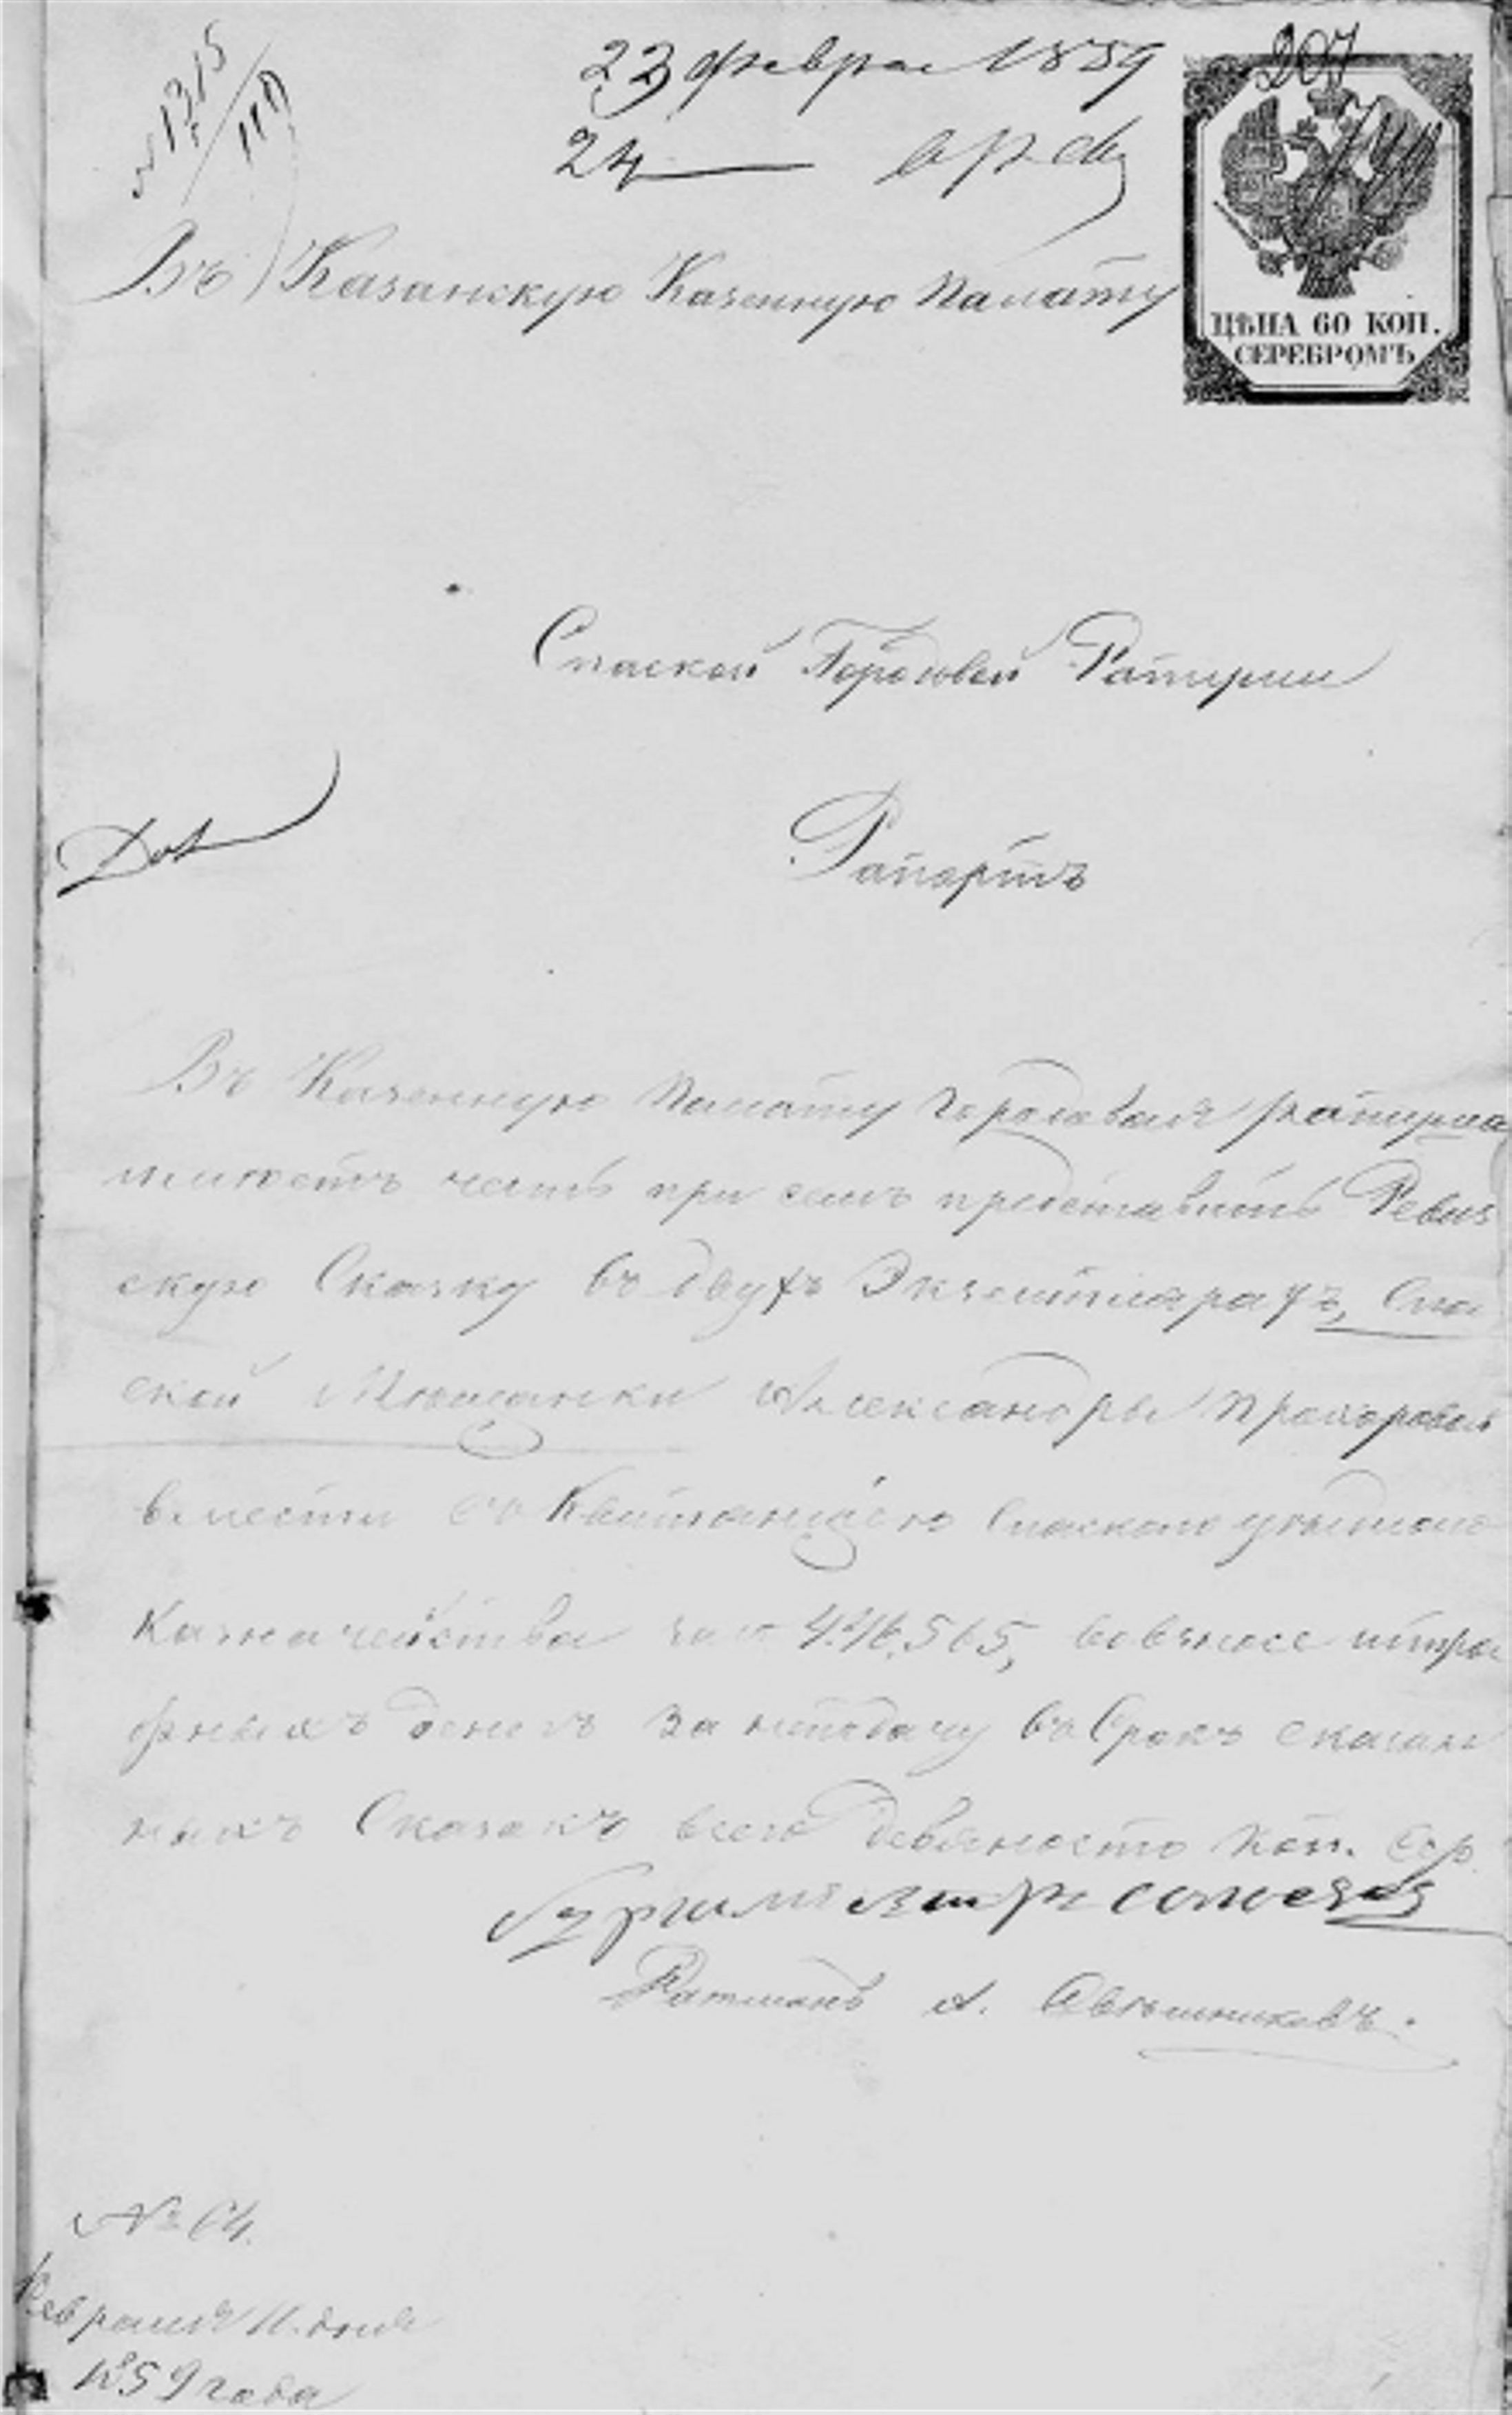 207
23 февра 1859
№ 1315/
24
Въ Казанскую Казенную Палату
ЦѢНА 60 КОП.
СЕРЕБРОМЪ
Спаской Городовой Ратуши
Рапортъ
Въ Казенную Палату Городовая ратуша
имѣетъ честь при семъ представить Ревиз
скую Сказку въ двухъ Экземплярахъ, Спа
ской Мѣщанки Александры Прохоровой
вместе съ Квитанціею Спаскаго уѣзднаго
Казначейства за № 565, во взносе штра
фныхъ денегъ за неподачу въ Срокъ сказан
ныхъ Сказокъ всего девяносто коп. Сер.
Ратманъ А.
№ 64.
Февраля 11 дня
1859 года